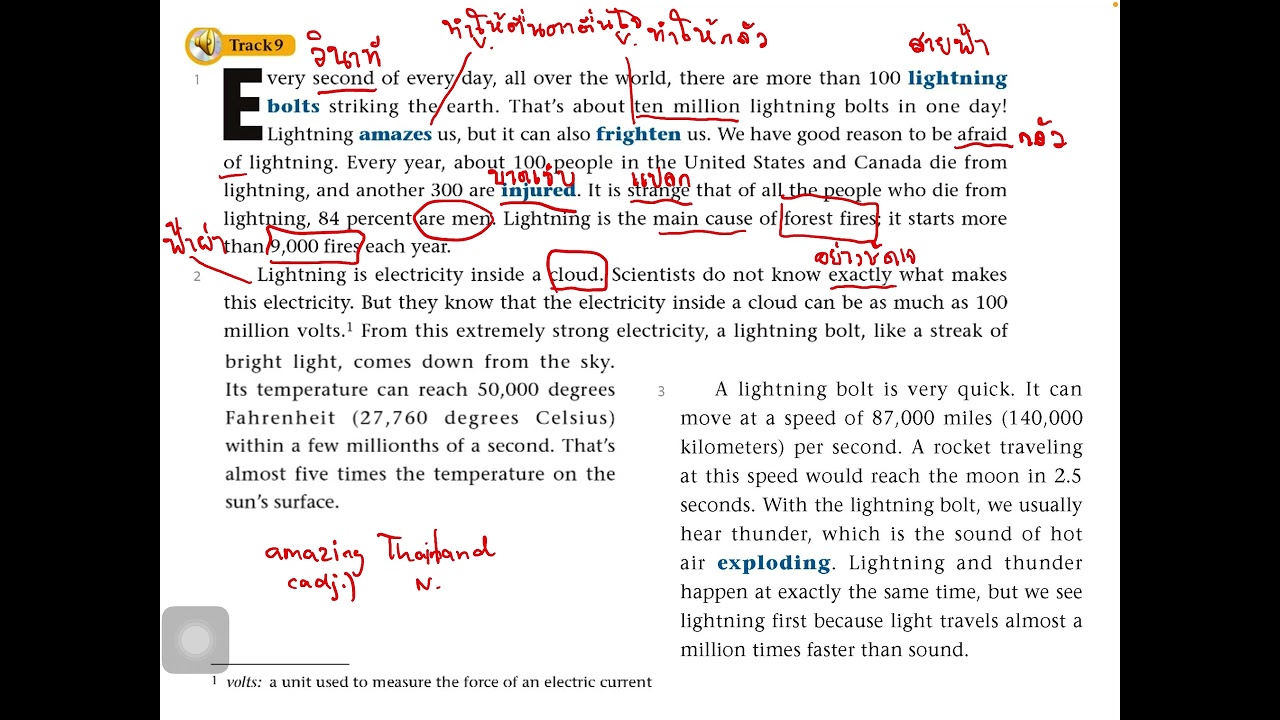 ทำให้ตื่นตาตื่นใจ ทำให้กลัว
Track 9 วินาที สายฟ้า
1 Every second of every day, all over the world, there are more than 100 lightning
bolts striking the earth. That's about ten million lightning bolts in one day!
Lightning amazes us, but it can also frighten us. We have good reason to be afraid กลัว
of lightning. Every year, about 100 people in the United States and Canada die from
บาดเจ็บ แปลก
lightning, and another 300 are injured. It is strange that of all the people who die from
lightning, 84 percent are men. Lightning is the main cause of forest fires; it starts more
ฟ้าผ่า than 9,000 fires each year.
อย่างชัดเจ
2 Lightning is electricity inside a cloud. Scientists do not know exactly what makes
this electricity. But they know that the electricity inside a cloud can be as much as 100
million volts.¹ From this extremely strong electricity, a lightning bolt, like a streak of
bright light, comes down from the sky.
Its temperature can reach 50,000 degrees
Fahrenheit (27,760 degrees Celsius)
within a few millionths of a second. That's
almost five times the temperature on the
sun's surface.
amazing Thailand
(adj.) N.
3 A lightning bolt is very quick. It can
move at a speed of 87,000 miles (140,000
kilometers) per second. A rocket traveling
at this speed would reach the moon in 2.5
seconds. With the lightning bolt, we usually
hear thunder, which is the sound of hot
air exploding. Lightning and thunder
happen at exactly the same time, but we see
lightning first because light travels almost a
million times faster than sound.
¹ volts: a unit used to measure the force of an electric current